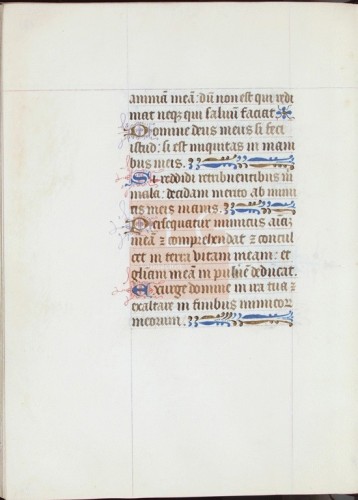 animā meā: dū non est qui redi
mat neqz qui saluū faciat
Domine deus meus si feci
istud: si est iniquitas in mani
bus meis.
Si reddidi retribuentibus m
michi: decidam merito ab inimi
cis meis inanis.
Persequatur inimicus aiaz
meā z comprehendat z concul
cet in terra vitam meam: et
gliam meā in puluē deducat.
Exurge domine in ira tua z
exaltare in finibus inimicor
meorum.